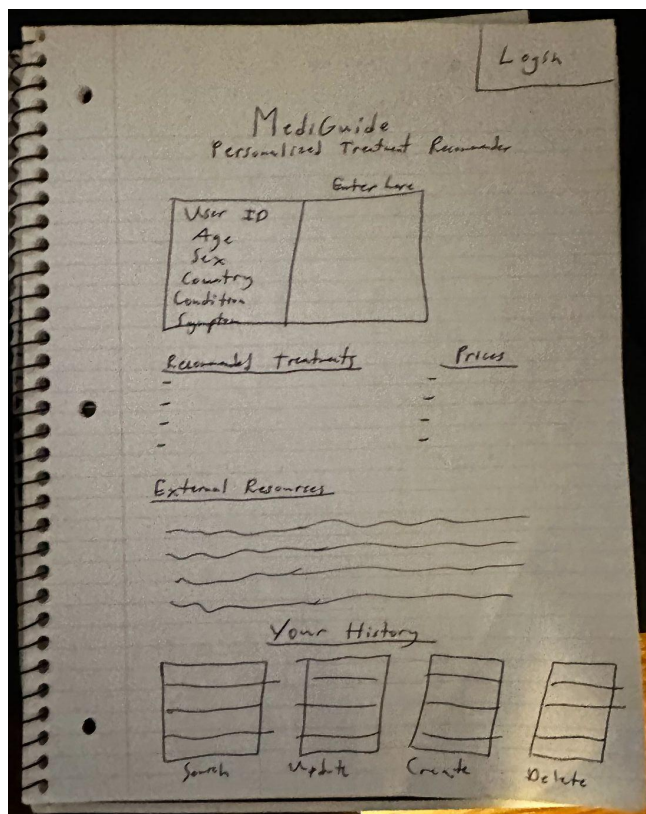 Login
MediGuide
Personalized Treatment Recommender
Enter here
User ID
Age
Sex
Country
Condition
Symptom
Recommended Treatments
Prices
External Resourses
Your History
Search Update Create Delete